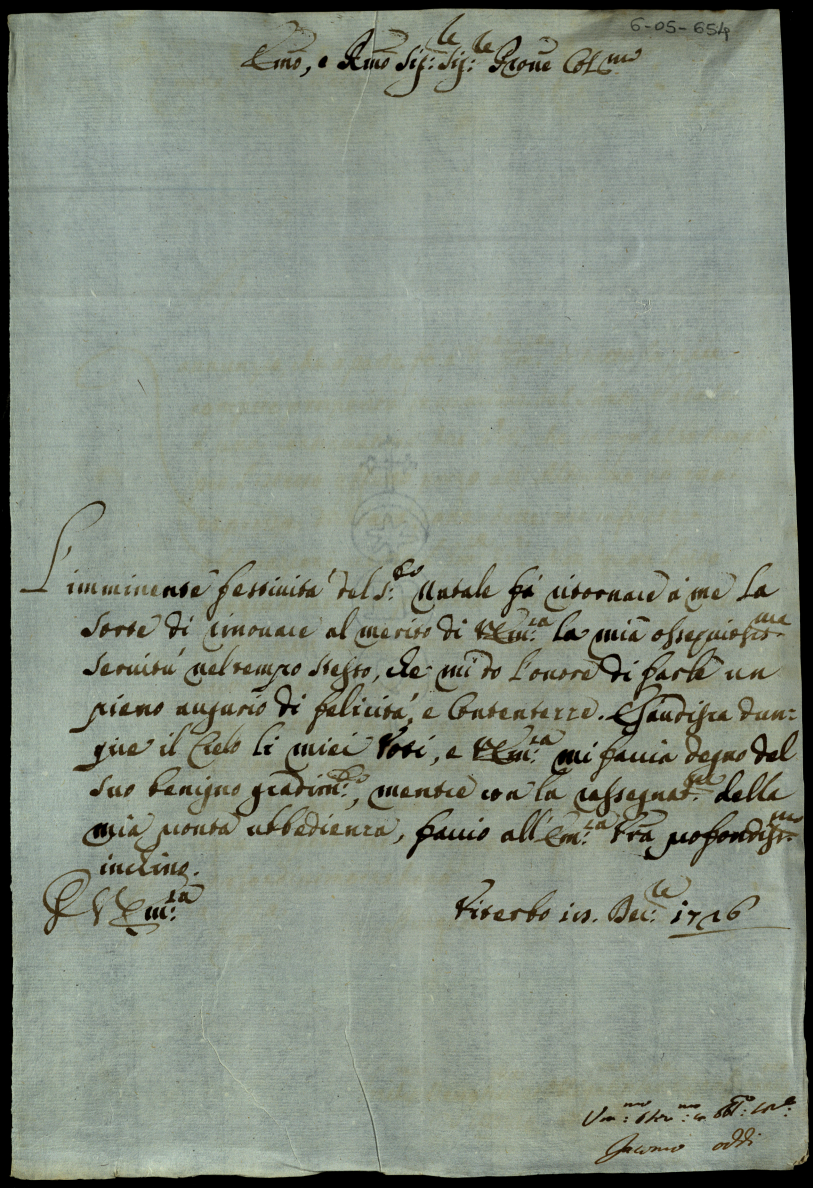 6-05-654
Emo, e Rmo Sig:re Sig:re Prone Colmo
L'imminente festività del S:to Natale fà ritornare à me la
sorte di rinovare al merito di VEm:za la mia ossequiosis:ma
servitù nel tempo stesso, che mi do l'onore di farle un
pieno augurio di felicità, e Contentezze. Esaudisca dun=
que il Cielo li miei Voti, e VEm:za mi faccia degno del
suo benigno gradim:to, mentre con la rassegnaz:ne della
mia pronta ubbedienza, faccio all'Em:za Vra profondiss:mo
inchino.
Di VEm:za
Viterbo Dec:re 1726
Um:mo ser:mo obl:
Giacomo Oddi